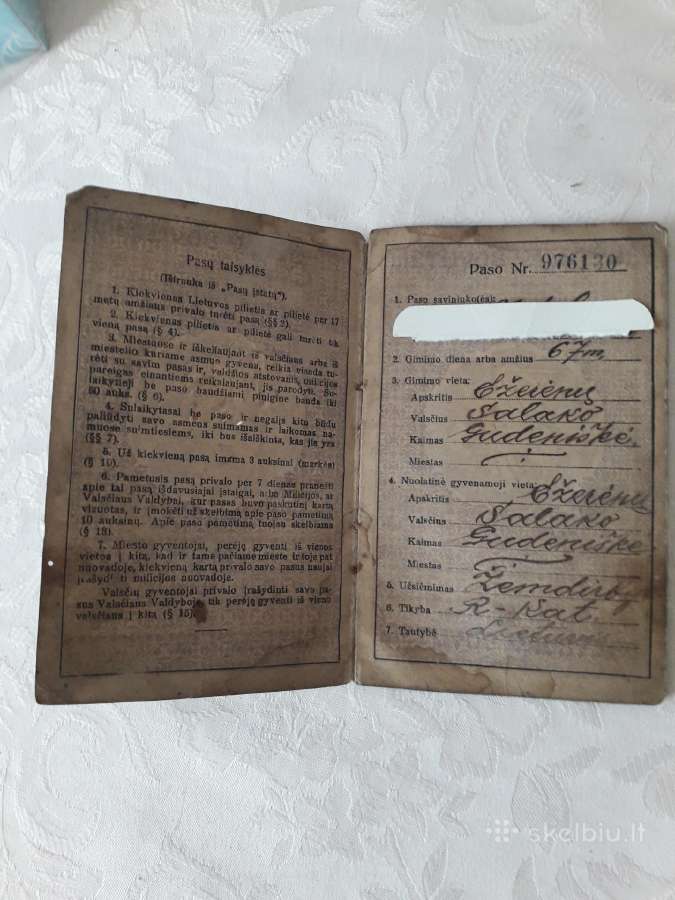 Pasų taisyklės
(Ištrauka iš „Pasų įstatų“).
1. Kiekvienas Lietuvos pilietis ar pilietė per 17
metų amžiaus privalo turėti pasą (§§ 2).
2. Kiekvienas pilietis ar pilietė gali turėti tik
vieną pasą (§ 4).
3. Miestuose ir iškeliaujant iš valsčiaus arba iš
miestelio kuriame asmuo gyvena, reikia visada tu-
rėti su savim pasas ir, valdžios atstovams, milicijos
pareigas einantiems reikalaujant, jis parodyti. Su-
laikytieji be paso baudžiami pinigine bauda iki
50 auks. (§ 6).
4. Sulaikytasai be paso ir negalįs kitu būdu
paliūdyti savo asmens suimamas ir laikomas na-
muose su'mtiesiems, iki bus išaiškinta, kas jis yra
(§§ 7).
5. Už kiekvieną pasą imama 3 auksinai (markės)
(§ 10).
6. Pametusis pasą privalo per 7 dienas pranešti
apie tai pasą išdavusiajai įstaigai, arba Milicijos, ar
Valsčiaus Valdybai, kur pasas buvo paskutinį kartą
vizuotas, ir įmokėti už skelbimą apie paso pametimą
10 auksinų. Apie paso pametimą tuojau skelbiama
(§ 13).
7. Miesto gyventojai, perėję gyventi iš vienos
vietos į kitą, kad ir tame pačiame mieste ir toje pat
nuovadoje, kiekvieną kartą privalo savo pasus naujai
įrašydi ti milicijos nuovadoje.
Valsčių gyventojai privalo įrašydinti savo pa-
sus Valsčiaus Valdyboje, tik perėję gyventi iš vieno
valsčiaus į kitą (§ 15).
Paso Nr. 976130
1. Paso savininko(ės):
2. Gimimo diena arba amžius 67 m.
3. Gimimo vieta:
Apskritis Ežerėnų
Valsčius Salako
Kaimas Gudeniškė
Miestas
4. Nuolatinė gyvenamoji vieta:
Apskritis Ežerėnų
Valsčius Salako
Kaimas Gudeniškė
Miestas
5. Užsiėmimas Žemdirb
6. Tikyba R-Kat.
7. Tautybė Lietuv
skelbiu.lt